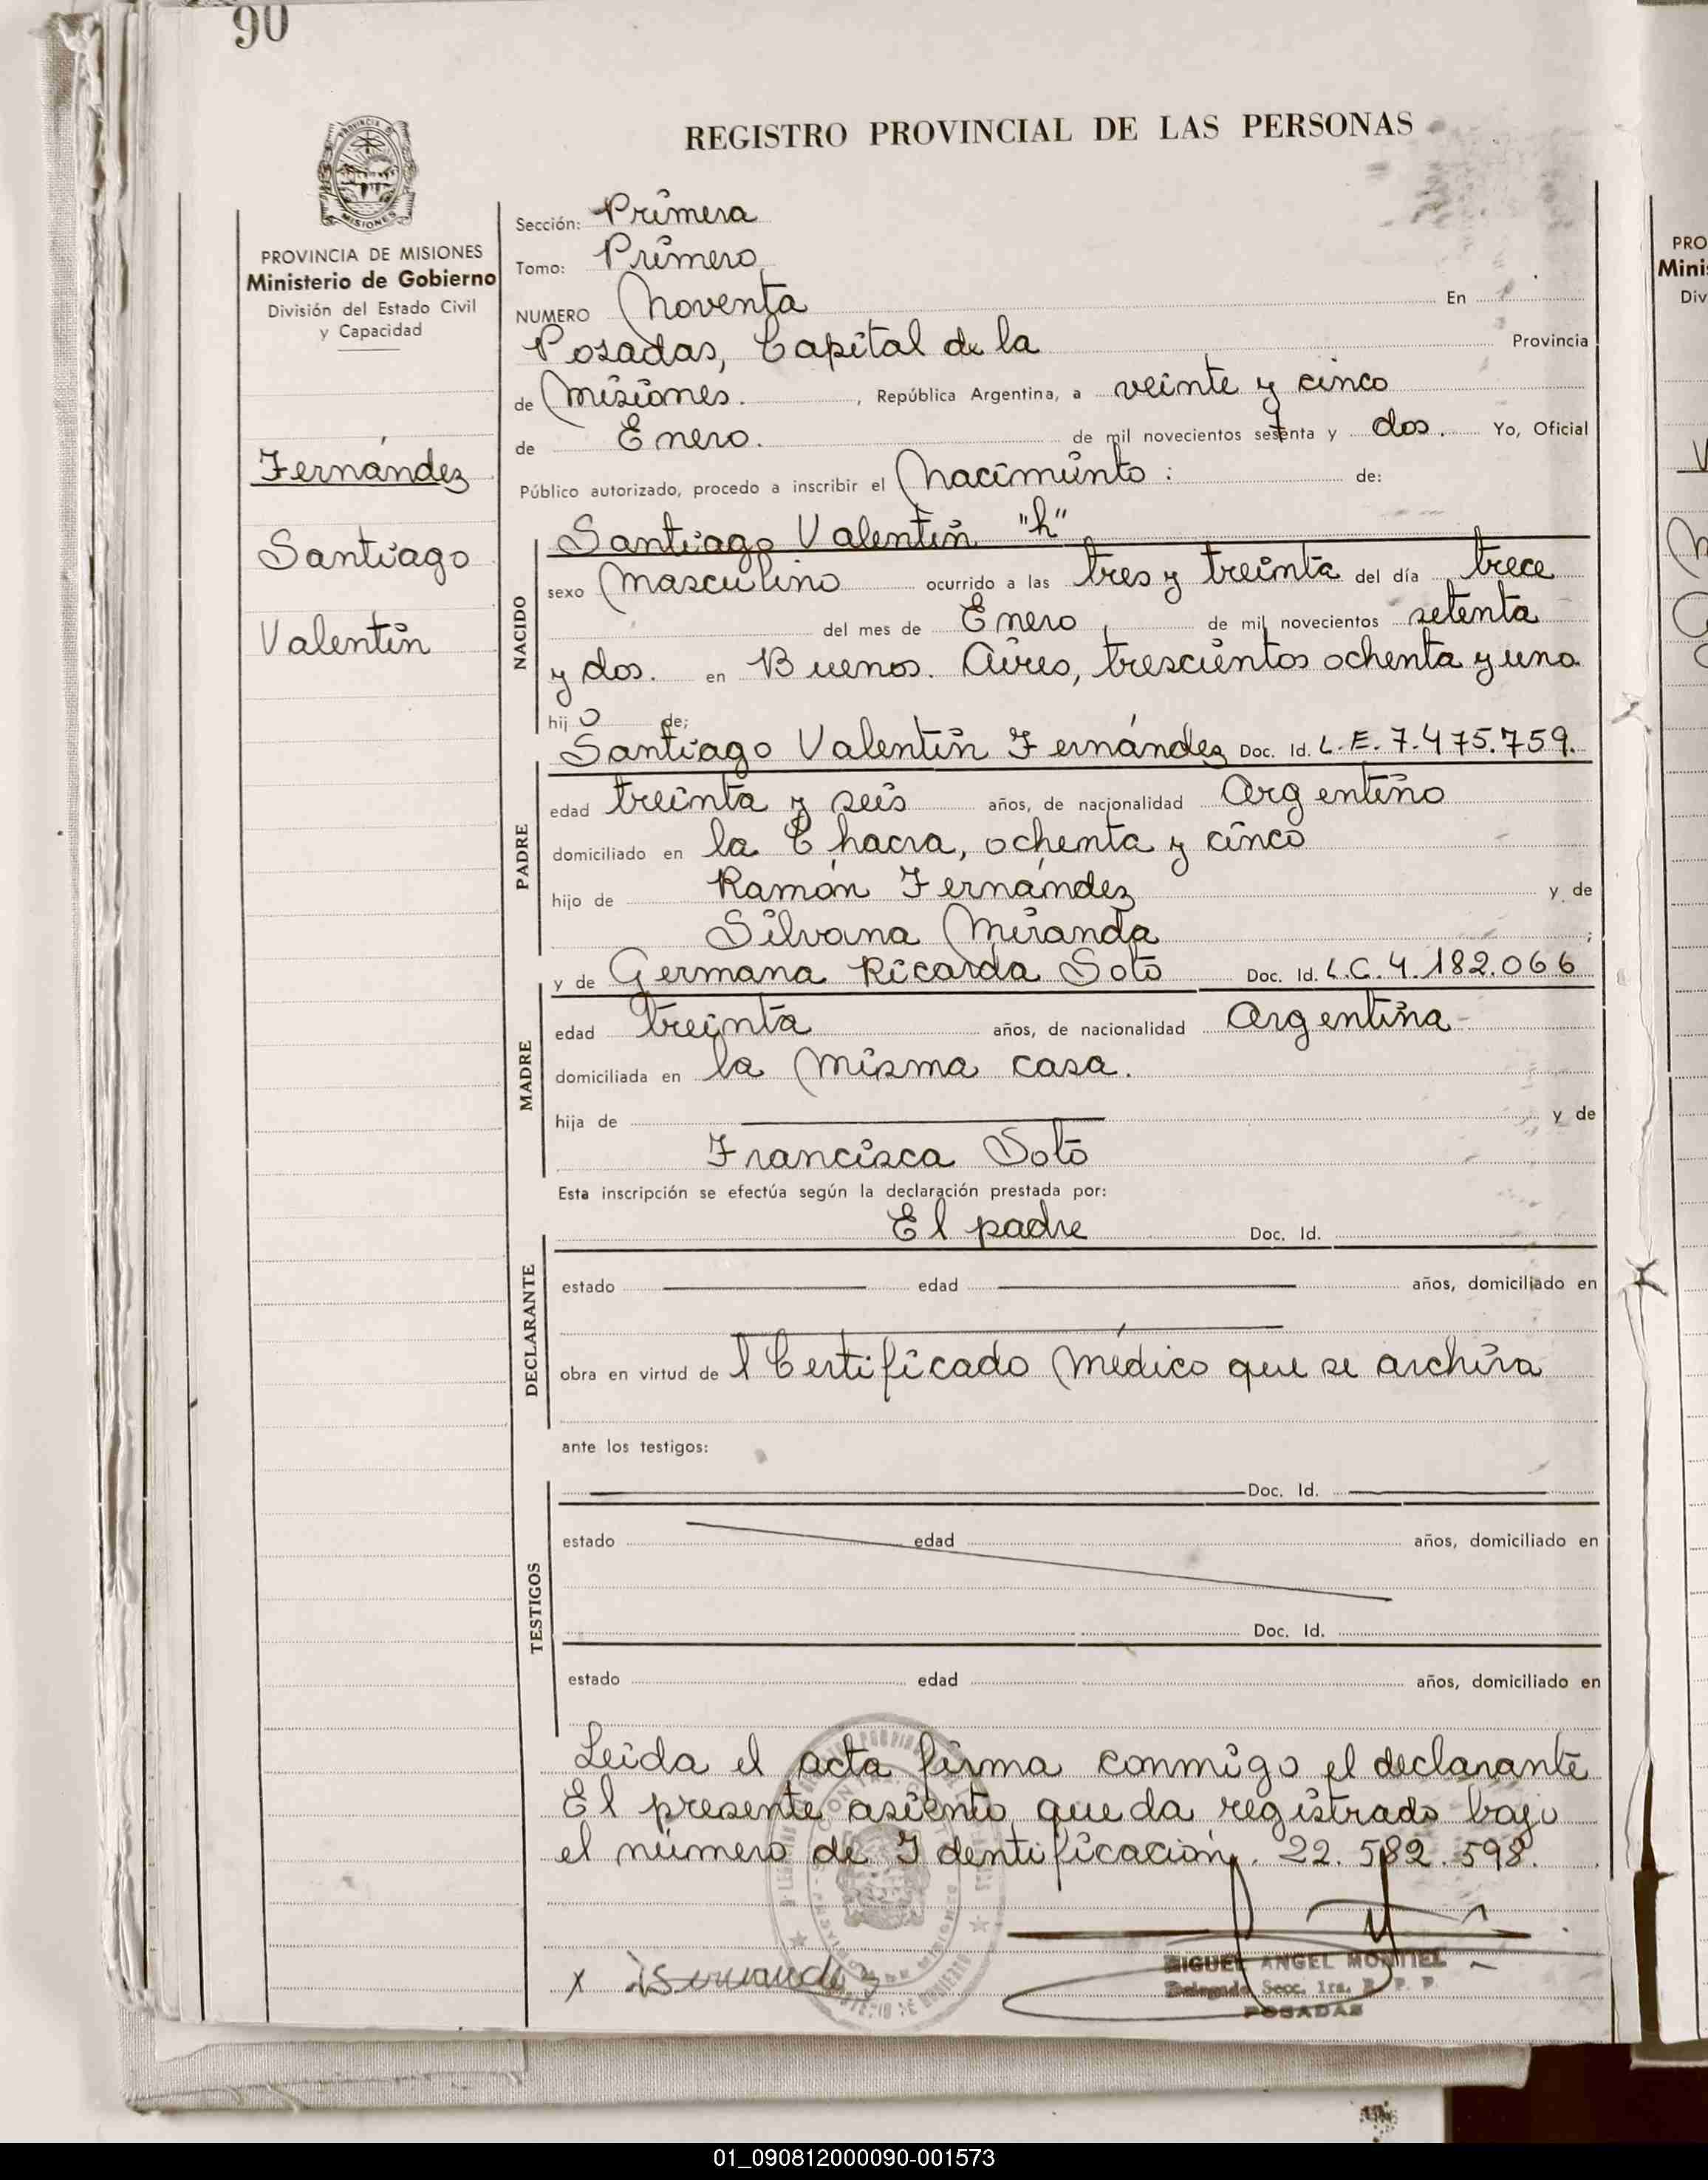 90
REGISTRO PROVINCIAL DE LAS PERSONAS
PROVINCIA DE MISIONES
Ministerio de Gobierno
División del Estado Civil
y Capacidad
Fernández
Santiago
Valentín
Sección: Primera
Tomo: Primero
NUMERO Noventa En
Posadas, Capital de la Provincia
de Misiones. , República Argentina, a veinte y cinco
de Enero. de mil novecientos setenta y dos. Yo, Oficial
Público autorizado, procedo a inscribir el Nacimiento: de:
NACIDO
Santiago Valentín "h"
sexo Masculino ocurrido a las tres y treinta del día trece
del mes de Enero, de mil novecientos setenta
y dos. en Buenos. Aires, trescientos ochenta y uno
hij o de;
PADRE
Santiago Valentín Fernández Doc. Id. L.E. 7.475.759.
edad treinta y seis años, de nacionalidad Argentino
domiciliado en la Chacra, ochenta y cinco
hijo de Ramón Fernández y de
Silvana Miranda ;
MADRE
y de Germana Ricarda Soto Doc. Id. L.C. 4.182.066
edad treinta años, de nacionalidad Argentina
domiciliada en la Misma casa.
hija de y de
Francisca Soto
Esta inscripción se efectúa según la declaración prestada por:
DECLARANTE
El padre Doc. Id.
estado edad años, domiciliado en
obra en virtud de l Certificado Médico que se archiva
ante los testigos:
TESTIGOS
Doc. Id.
estado edad años, domiciliado en
Doc. Id.
estado edad años, domiciliado en
Leida el acta firma conmigo el declarante
El presente asiento queda registrado bajo
el número de Identificación. 22.582.598.
x Fernandez
MIGUEL ANGEL MONTIEL
Delegado Secc. 1ra. R. P. P.
POSADAS
PRO
Mini
Div
01_090812000090-001573